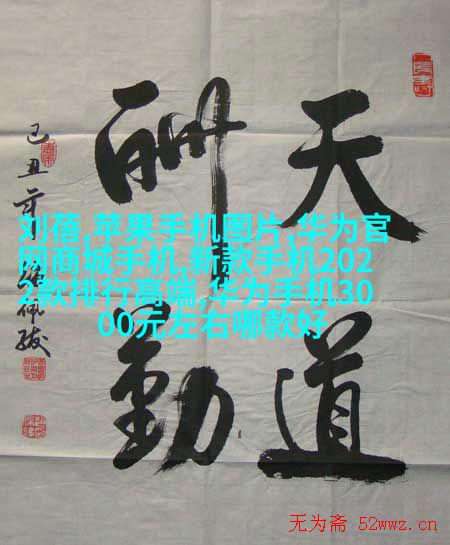 天道
酬勤
己丑
刘蓓,苹果手机图片,华为官
网商城手机,新款手机202
2款排行高端,华为手机30
00元左右哪款好
无为斋 52wwz.cn